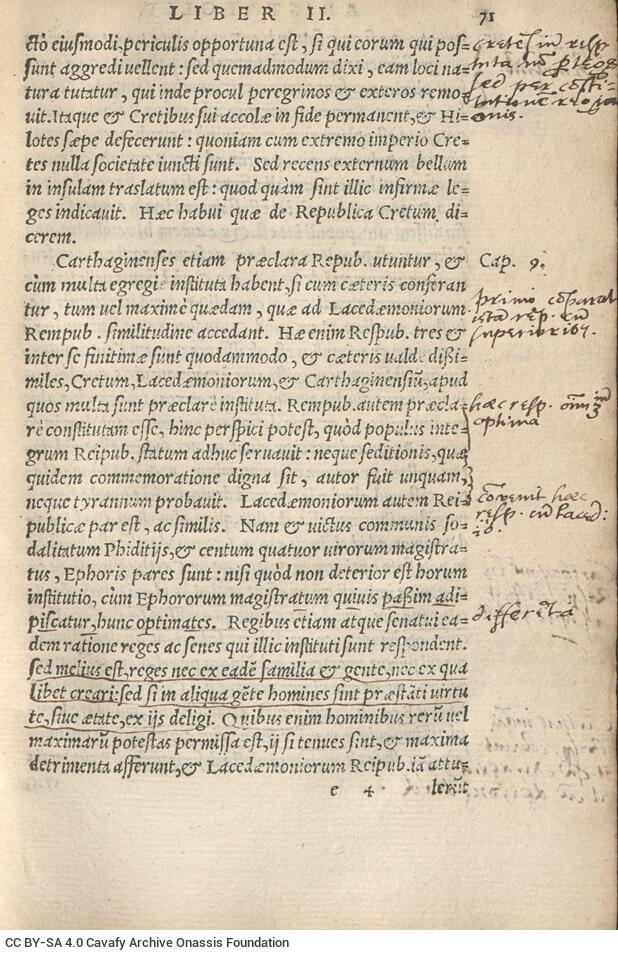 LIBER II. 71
ctò eiusmodi periculis opportuna est, si qui eorum qui pos-
sunt aggredi uellent: sed quemadmodum dixi, eam loci na-
tura tutatur, qui inde procul peregrinos & exteros remo-
uit. Itaque & Cretibus sui accolæ in fide permanent, & Hi-
lotes sæpe defecerunt: quoniam cum extremo imperio Cre-
tes nulla societate iuncti sunt. Sed recens externum bellum
in insulam traslatum est: quod quàm sint illic infirmæ le-
ges indicauit. Hæc habui quæ de Republica Cretum di-
cerem.
Carthaginenses etiam præclara Repub. utuntur, &
cùm multa egregiè instituta habent, si cum cæteris conferan
tur, tum uel maximè quædam, quæ ad Lacedæmoniorum
Rempub. similitudine accedant. Hæ enim Respub. tres &
inter se finitimæ sunt quodammodo, & cæteris ualde dißi-
miles, Cretum, Lacedæmoniorum, & Carthaginensiũ, apud
quos multa sunt præclarè instituta. Rempub. autem præcla-
rè constitutam esse, hinc perspici potest, quòd populus inte-
grum Reipub. statum adhuc seruauit: neque seditionis, quæ
quidem commemoratione digna sit, autor fuit unquam,
neque tyrannum probauit. Lacedæmoniorum autem Rei-
publicæ par est, ac similis. Nam & uictus communis so-
dalitatum Phiditijs, & centum quatuor uirorum magistra-
tus, Ephoris pares sunt: nisi quòd non deterior est horum
institutio, cùm Ephororum magistratum quiuis paßim adi-
piscatur, hunc optimates. Regibus etiam atque senatui ea-
dem ratione reges ac senes qui illic instituti sunt respondent.
sed melius est, reges nec ex eadẽ familia & gente, nec ex qua
libet creari: sed si in aliqua gẽte homines sint præstãti uirtu
te, siue ætate, ex ijs deligi. Quibus enim hominibus rerũ uel
maximarũ potestas permissa est, ij si tenues sint, & maxima
detrimenta afferunt, & Lacedæmoniorum Reipub. iã attu-
e 4 lerũt
Cap. 9.
hæc resp.
optima
conuenit hæc
resp. cũ laced:
differẽtia
CC BY-SA 4.0 Cavafy Archive Onassis Foundation